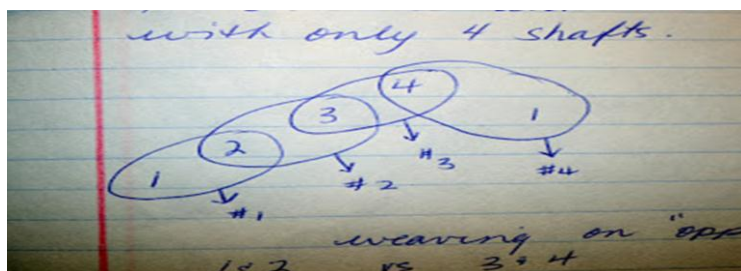 with only 4 shafts.
4
3 1
2 #3
1 #2 #4
#1
weaving on "opp
1 & 2 vs 3 & 4